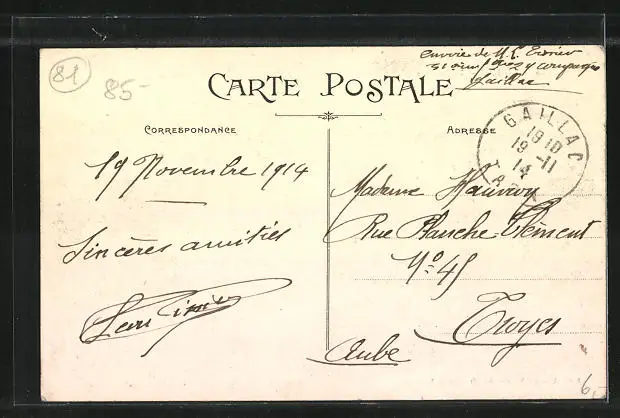 81
85-
envoie de M. L.
Gaillac
CARTE POSTALE
CORRESPONDANCE
ADRESSE
GAILLAC
19 10
19 -11
14
TARN
19 Novembre 1914
Sincères amitiés
Madame
Rue Planche Clément
No 45
Troyes
Aube
6,-